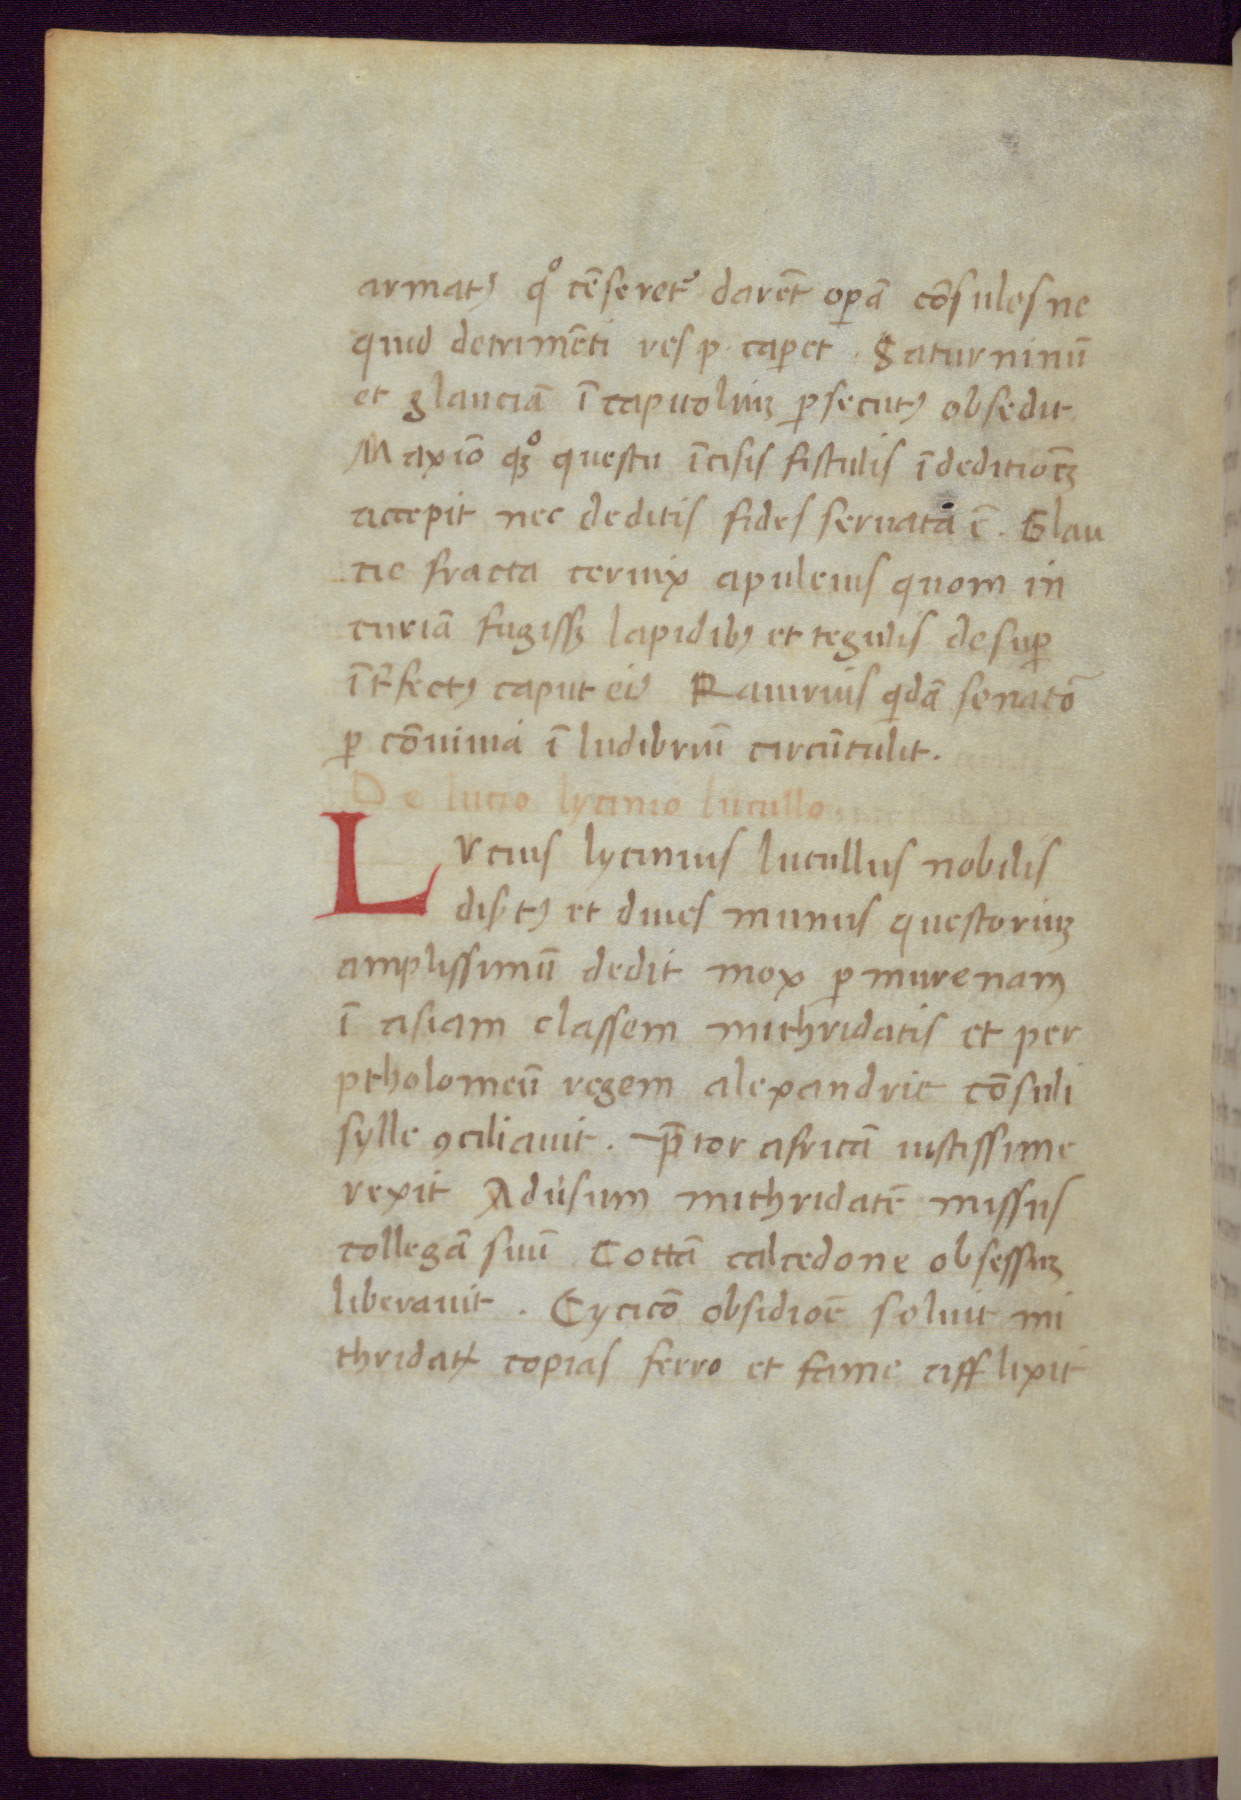 armatꝰ qͦ cēseret᷑ darēt oꝑā cōsules ne
quid detrimēti res p. caꝑet. Saturninū
et glauciā ī capitoliuꝫ ꝑsecutꝰ obsedit
Maxīo qꝫͦ questu īcisis fistulis ī deditiōeꝫ
accepit nec deditis fides seruata ē. Glau
cie fracta ceruix apuleius quom in
curiā fugissꝫ lapidibꝰ et tegulis desuꝑ
īt᷑fectꝰ caput eiꝰ Rauirius qdā senatō
ꝑ cōuiuia ī ludibriū circūtulit.
De lucio lycinio lucullo
Lvcius lycinius lucullus nobilis
disꝰtꝰ et diues munus questoriuꝫ
amplissimū dedit mox ꝑ murenam
ī asiam classem mithridatis et per
ptholomeū regem alexandrie cōsuli
sylle ꝯciliauit. p̄tor africā iustissime
rexit Adu᷑sum mithridatē missus
collegā suū Cottā calcedone obsessuꝫ
liberauit. Cycicō obsidiōe soluit mi
thridatꝭ copias ferro et fame afflixit